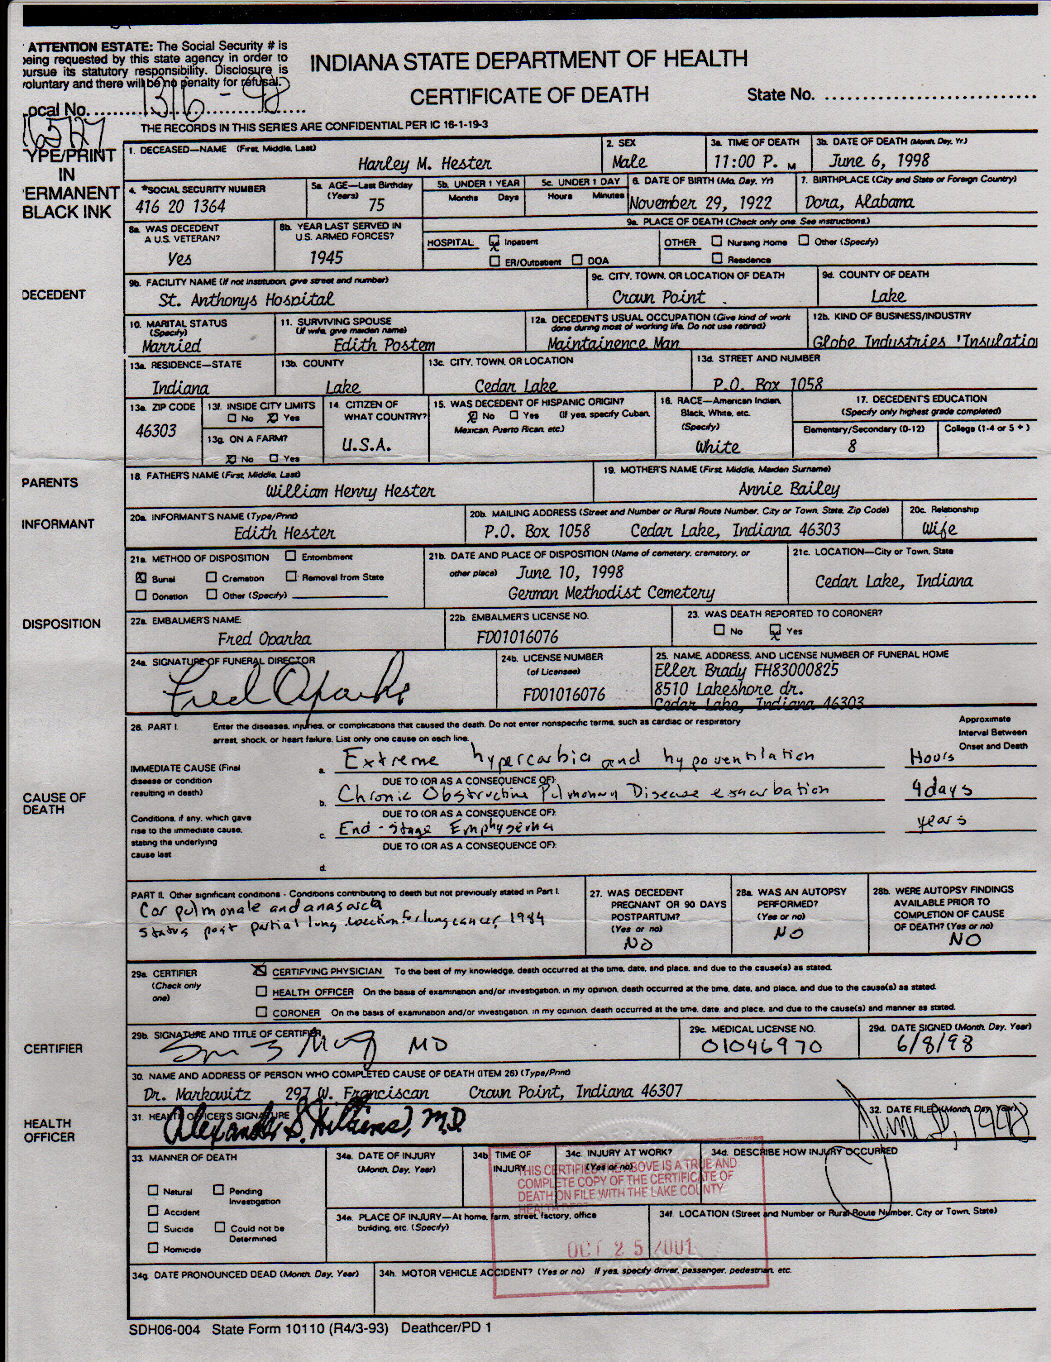 ATTENTION ESTATE: The Social Security # is
being requested by this state agency in order to
pursue its statutory responsibility. Disclosure is
voluntary and there will be no penalty for refusal.
INDIANA STATE DEPARTMENT OF HEALTH
CERTIFICATE OF DEATH
State No.
Local No. 1316-98
THE RECORDS IN THIS SERIES ARE CONFIDENTIAL PER IC 16-1-19-3
TYPE/PRINT
IN
PERMANENT
BLACK INK
1. DECEASED—NAME (First, Middle, Last)
Harley M. Hester
2. SEX
Male
3a. TIME OF DEATH
11:00 P. M
3b. DATE OF DEATH (Month, Day, Yr.)
June 6, 1998
4. *SOCIAL SECURITY NUMBER
416 20 1364
5a. AGE—Last Birthday
(Years)
75
5b. UNDER 1 YEAR
Months Days
5c. UNDER 1 DAY
Hours Minutes
6. DATE OF BIRTH (Mo, Day, Yr)
November 29, 1922
7. BIRTHPLACE (City and State or Foreign Country)
Dora, Alabama
8a. WAS DECEDENT
A U.S. VETERAN?
Yes
8b. YEAR LAST SERVED IN
U.S. ARMED FORCES?
1945
9a. PLACE OF DEATH (Check only one. See instructions.)
HOSPITAL Inpatient
ER/Outpatient DOA
OTHER Nursing Home Other (Specify)
Residence
DECEDENT
9b. FACILITY NAME (If not institution, give street and number)
St. Anthonys Hospital
9c. CITY, TOWN, OR LOCATION OF DEATH
Crown Point
9d. COUNTY OF DEATH
Lake
10. MARITAL STATUS
(Specify)
Married
11. SURVIVING SPOUSE
(If wife, give maiden name)
Edith Postem
12a. DECEDENT'S USUAL OCCUPATION (Give kind of work
done during most of working life. Do not use retired)
Maintainence Man
12b. KIND OF BUSINESS/INDUSTRY
Globe Industries 'Insulatio
13a. RESIDENCE—STATE
Indiana
13b. COUNTY
Lake
13c. CITY, TOWN, OR LOCATION
Cedar Lake
13d. STREET AND NUMBER
P.O. Box 1058
13e. ZIP CODE
46303
13f. INSIDE CITY LIMITS
No Yes
13g. ON A FARM?
No Yes
14. CITIZEN OF
WHAT COUNTRY?
U.S.A.
15. WAS DECEDENT OF HISPANIC ORIGIN?
No Yes (If yes, specify Cuban,
Mexican, Puerto Rican, etc.)
16. RACE—American Indian,
Black, White, etc.
(Specify)
White
17. DECEDENT'S EDUCATION
(Specify only highest grade completed)
Elementary/Secondary (0-12) College (1-4 or 5+)
8
PARENTS
18. FATHER'S NAME (First, Middle, Last)
William Henry Hester
19. MOTHER'S NAME (First, Middle, Maiden Surname)
Annie Bailey
INFORMANT
20a. INFORMANT'S NAME (Type/Print)
Edith Hester
20b. MAILING ADDRESS (Street and Number or Rural Route Number, City or Town, State, Zip Code)
P.O. Box 1058 Cedar Lake, Indiana 46303
20c. Relationship
Wife
DISPOSITION
21a. METHOD OF DISPOSITION Entombment
Burial Cremation Removal from State
Donation Other (Specify)
21b. DATE AND PLACE OF DISPOSITION (Name of cemetery, crematory, or
other place) June 10, 1998
German Methodist Cemetery
21c. LOCATION—City or Town, State
Cedar Lake, Indiana
22a. EMBALMER'S NAME
Fred Oparka
22b. EMBALMER'S LICENSE NO.
FD01016076
23. WAS DEATH REPORTED TO CORONER?
No Yes
24a. SIGNATURE OF FUNERAL DIRECTOR
Fred Oparka
24b. LICENSE NUMBER
(of Licensee)
FD01016076
25. NAME, ADDRESS, AND LICENSE NUMBER OF FUNERAL HOME
Eller Brady FH83000825
8510 Lakeshore dr.
Cedar Lake, Indiana 46303
CAUSE OF
DEATH
26. PART I. Enter the diseases, injuries, or complications that caused the death. Do not enter nonspecific terms, such as cardiac or respiratory
arrest, shock, or heart failure. List only one cause on each line.
Approximate
Interval Between
Onset and Death
IMMEDIATE CAUSE (Final
disease or condition
resulting in death)
a. Extreme hypercarbia and hypoventilation Hours
DUE TO (OR AS A CONSEQUENCE OF):
b. Chronic Obstructive Pulmonary Disease exacerbation 9days
DUE TO (OR AS A CONSEQUENCE OF):
Conditions, if any, which gave
rise to the immediate cause,
stating the underlying
cause last
c. End-stage Emphysema years
DUE TO (OR AS A CONSEQUENCE OF):
d.
PART II. Other significant conditions - Conditions contributing to death but not previously stated in Part I.
Cor pulmonale and anasarca
Status post partial lung resection for lung cancer, 1984
27. WAS DECEDENT
PREGNANT OR 90 DAYS
POSTPARTUM?
(Yes or no)
NO
28a. WAS AN AUTOPSY
PERFORMED?
(Yes or no)
NO
28b. WERE AUTOPSY FINDINGS
AVAILABLE PRIOR TO
COMPLETION OF CAUSE
OF DEATH? (Yes or no)
NO
CERTIFIER
29a. CERTIFIER
(Check only
one)
CERTIFYING PHYSICIAN To the best of my knowledge, death occurred at the time, date, and place, and due to the cause(s) as stated.
HEALTH OFFICER On the basis of examination and/or investigation, in my opinion, death occurred at the time, date, and place, and due to the cause(s) as stated.
CORONER On the basis of examination and/or investigation, in my opinion, death occurred at the time, date, and place, and due to the cause(s) and manner as stated.
29b. SIGNATURE AND TITLE OF CERTIFIER
MD
29c. MEDICAL LICENSE NO.
01046970
29d. DATE SIGNED (Month, Day, Year)
6/8/98
30. NAME AND ADDRESS OF PERSON WHO COMPLETED CAUSE OF DEATH (ITEM 26) (Type/Print)
Dr. Markowitz 297 W. Franciscan Crown Point, Indiana 46307
HEALTH
OFFICER
31. HEALTH OFFICER'S SIGNATURE
Alexander S. Williams, M.D.
32. DATE FILED (Month, Day, Year)
1998
33. MANNER OF DEATH
Natural Pending
Investigation
Accident
Suicide Could not be
Determined
Homicide
34a. DATE OF INJURY
(Month, Day, Year)
34b. TIME OF
INJURY
34c. INJURY AT WORK?
(Yes or no)
34d. DESCRIBE HOW INJURY OCCURRED
THIS CERTIFIES THE ABOVE IS A TRUE AND
COMPLETE COPY OF THE CERTIFICATE OF
DEATH ON FILE WITH THE LAKE COUNTY
OCT 25 2001
34e. PLACE OF INJURY—At home, farm, street, factory, office
building, etc. (Specify)
34f. LOCATION (Street and Number or Rural Route Number, City or Town, State)
34g. DATE PRONOUNCED DEAD (Month, Day, Year)
34h. MOTOR VEHICLE ACCIDENT? (Yes or no) If yes, specify driver, passenger, pedestrian, etc.
SDH06-004 State Form 10110 (R4/3-93) Deathcer/PD 1